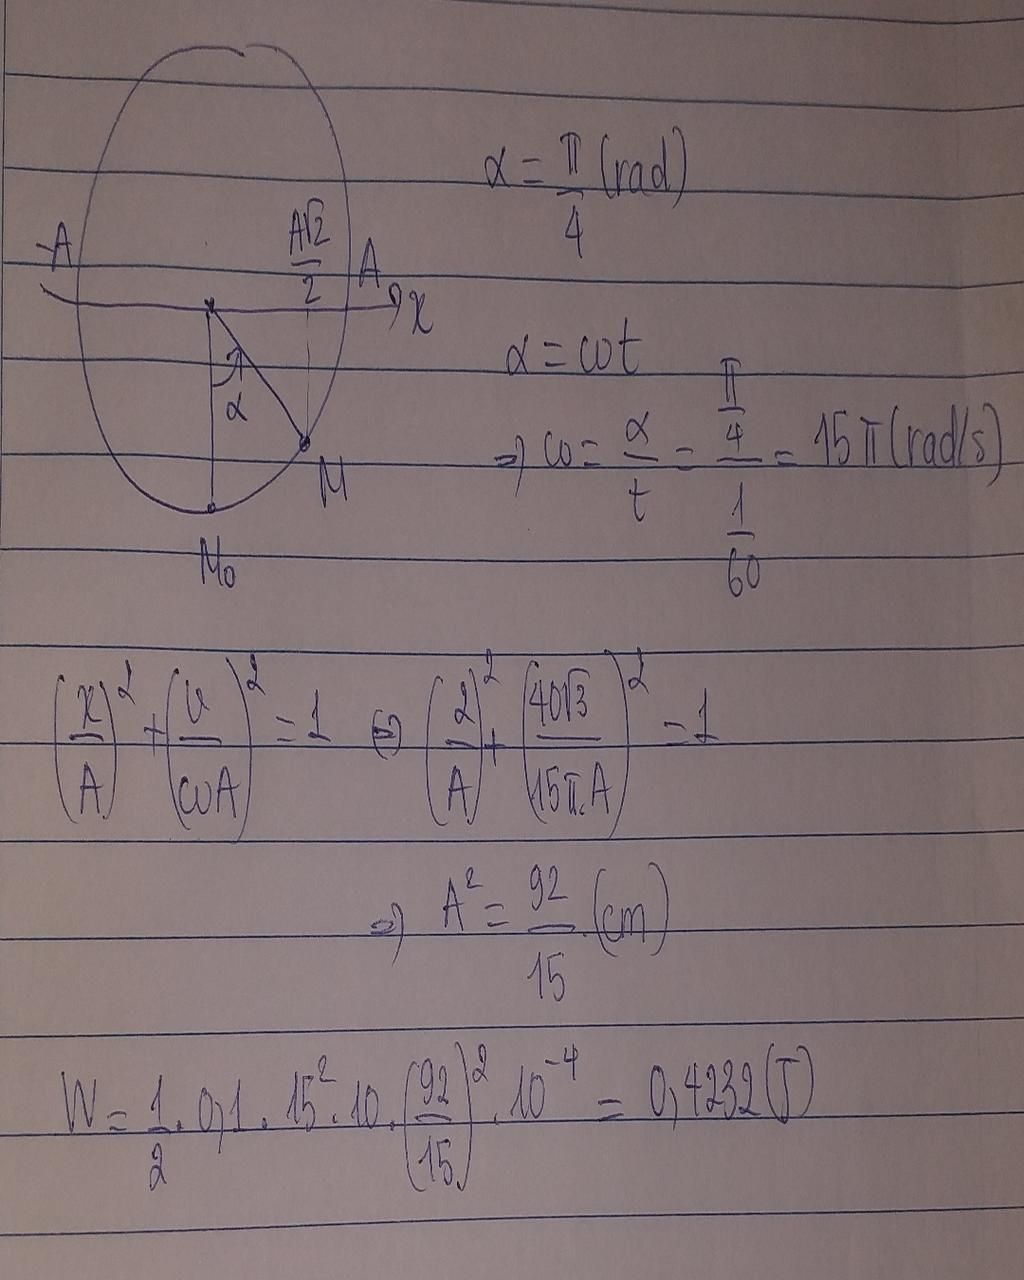 α = π/4 (rad)
-A
A√2/2
A
x
α
M
M₀
α = ωt
⇒ ω = α/t = (π/4)/(1/60) = 15π (rad/s)
(x/A)² + (v/ωA)² = 1 ⇔ (2/A)² + (40√3/15π.A)² = 1
⇒ A² = 92/15 (cm)
W = 1/2 . 0,1 . 15² . 10 . (92/15)² . 10⁻⁴ = 0,4232 (J)